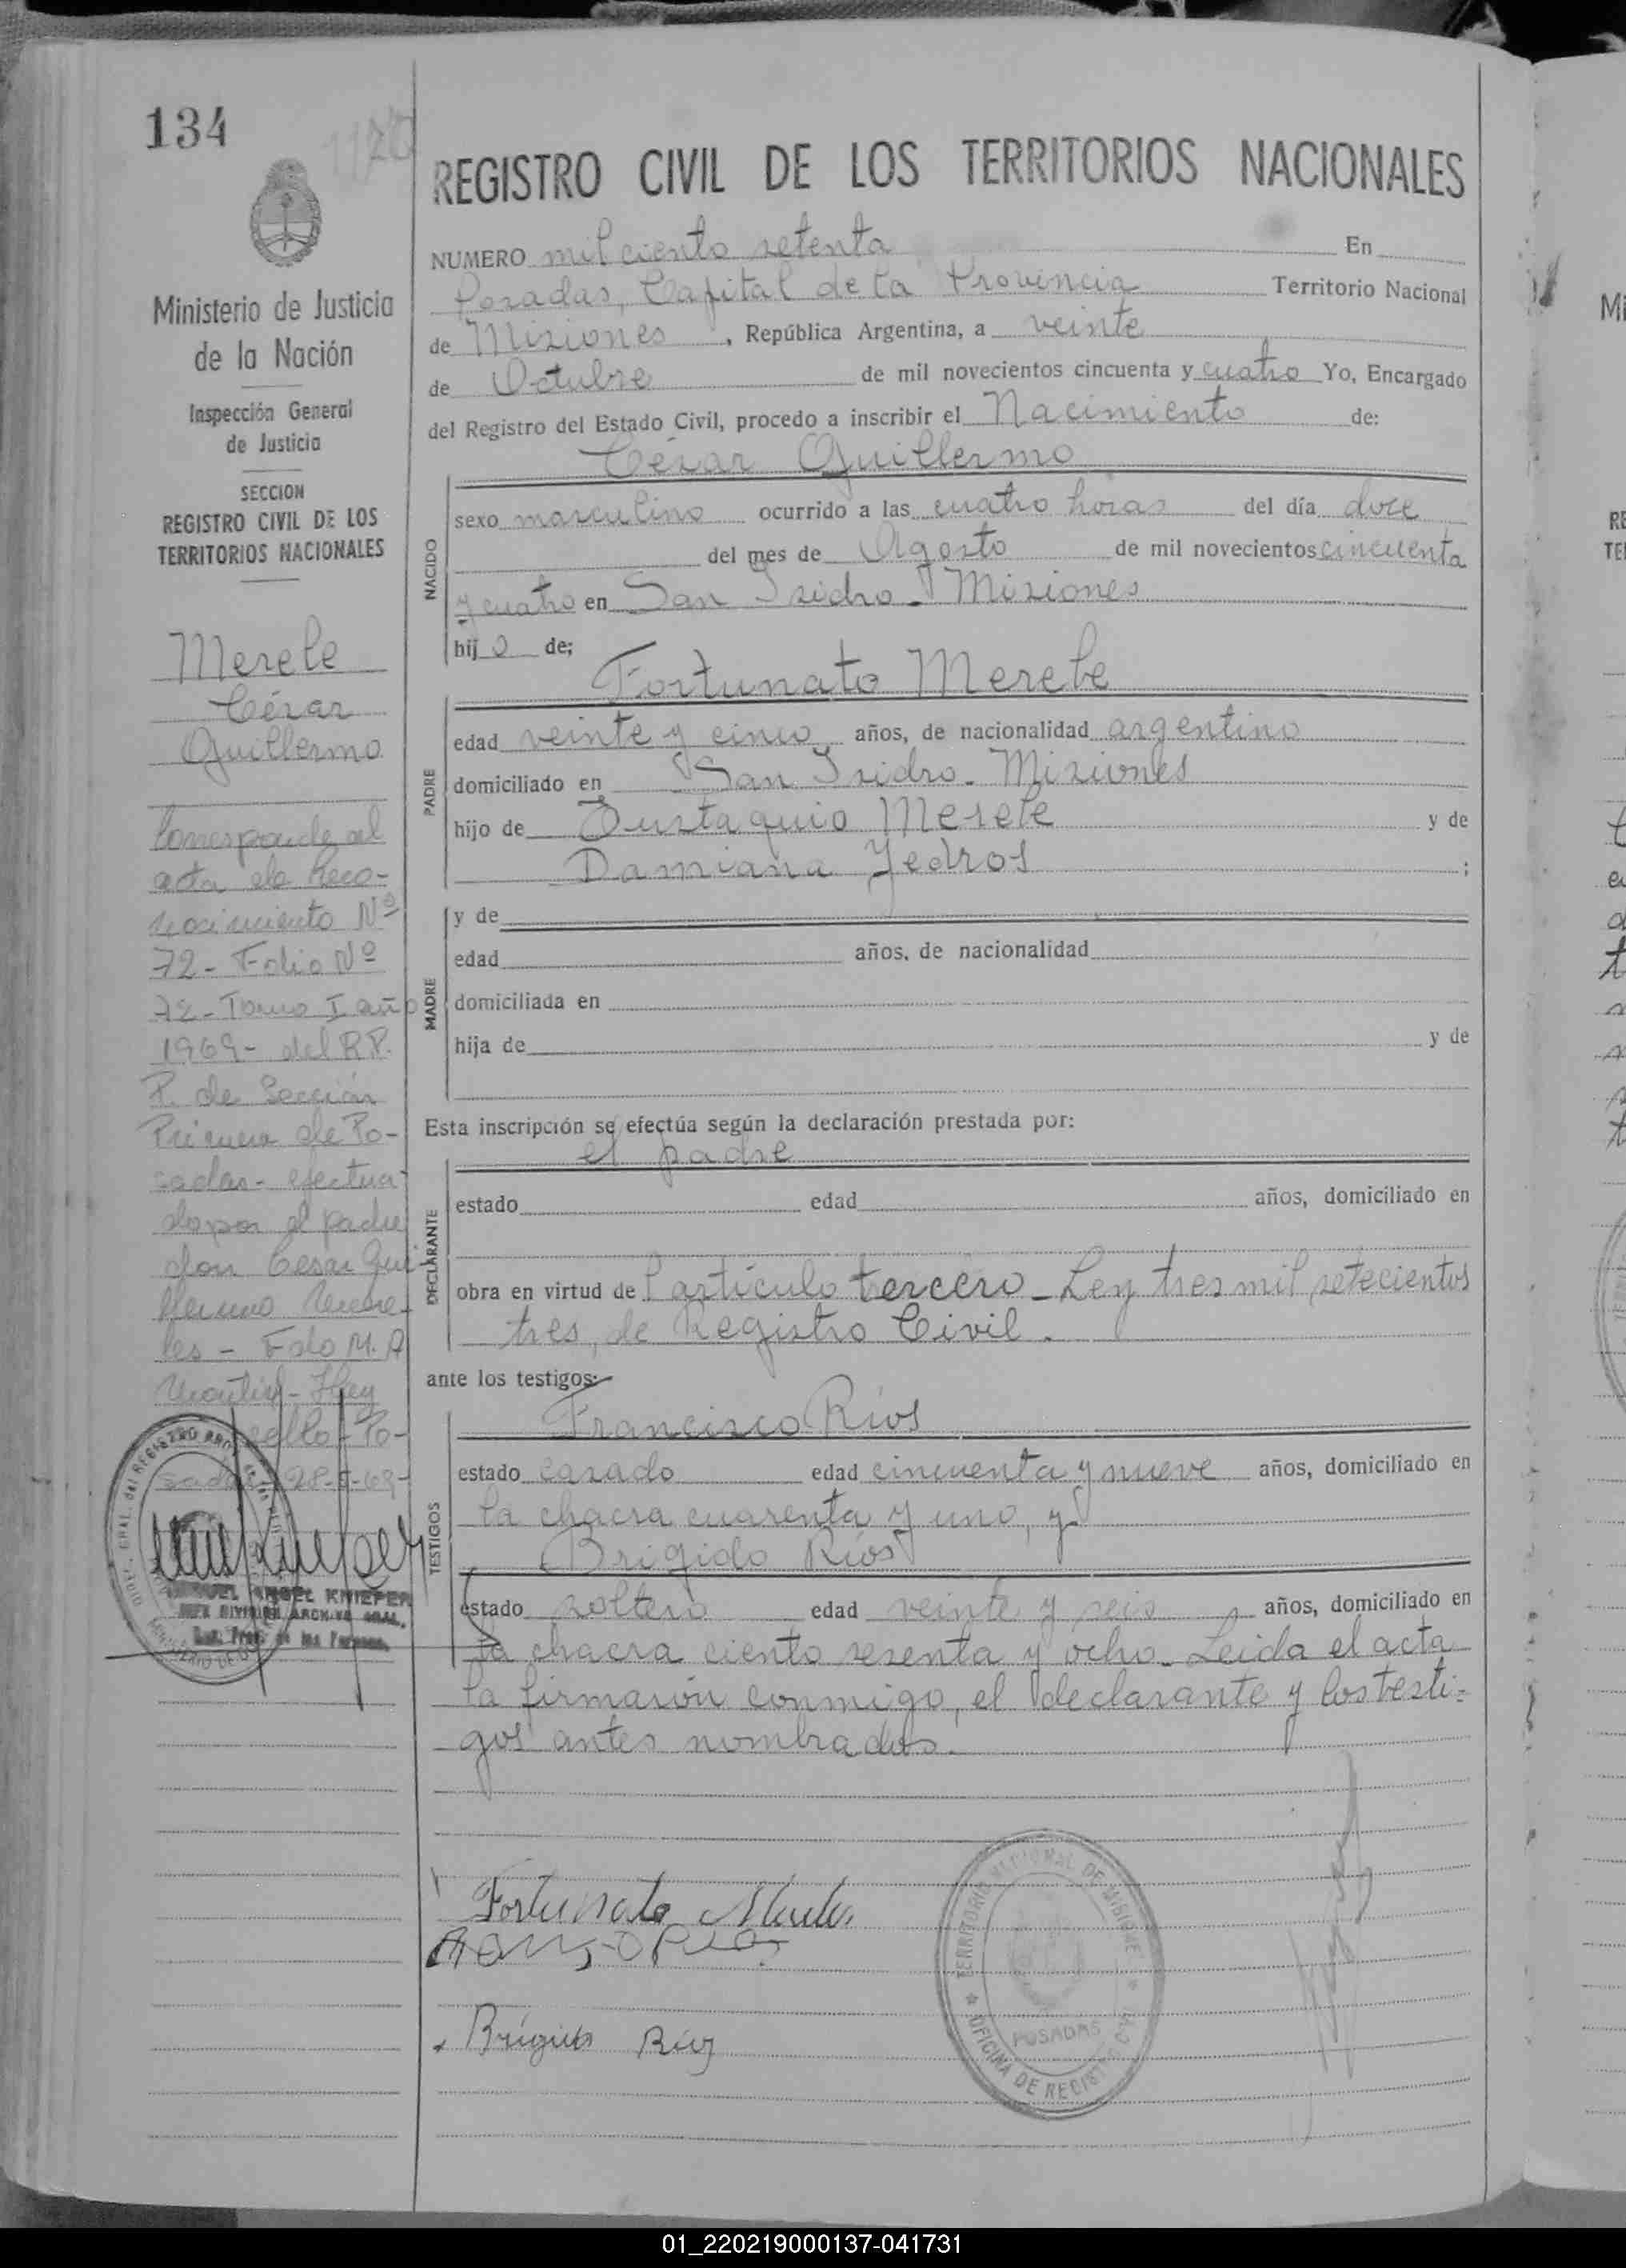 134
1170
REGISTRO CIVIL DE LOS TERRITORIOS NACIONALES
Ministerio de Justicia
de la Nación
Inspección General
de Justicia
SECCION
REGISTRO CIVIL DE LOS
TERRITORIOS NACIONALES
Merele
César
Guillermo
Corresponde al
acta de Reco-
nocimiento Nº
72- Folio Nº
72- Tomo I año
1969- del R.P.
P. de Sección
Primera de Po-
sadas- efectua-
do por el padre
don Cesar Gui-
llermo
les - Fdo M.A.
Hay
sello - Po-
sadas
MANUEL ANGEL KNIEPER
JEFE DIVISION ARCHIVO GRAL.
NUMERO mil ciento setenta En
Posadas, Capital de la Provincia Territorio Nacional
de Misiones, República Argentina, a veinte
de Octubre de mil novecientos cincuenta y cuatro Yo, Encargado
del Registro del Estado Civil, procedo a inscribir el Nacimiento de:
César Guillermo
NACIDO
sexo masculino ocurrido a las cuatro horas del día doce
del mes de Agosto de mil novecientos cincuenta
y cuatro en San Isidro - Misiones
hijo de;
Fortunato Merele
PADRE
edad veinte y cinco años, de nacionalidad argentino
domiciliado en San Isidro - Misiones
hijo de Eustaquio Merele y de
Damiana Yedros ;
MADRE
y de
edad años, de nacionalidad
domiciliada en
hija de y de
Esta inscripción se efectúa según la declaración prestada por:
el padre
DECLARANTE
estado edad años, domiciliado en
obra en virtud de l artículo tercero - Ley tres mil setecientos
tres, de Registro Civil.
ante los testigos:
Francisco Ríos
TESTIGOS
estado casado edad cincuenta y nueve años, domiciliado en
la chacra cuarenta y uno, y
Brigido Ríos
estado soltero edad veinte y seis años, domiciliado en
la chacra ciento sesenta y ocho - Leida el acta
la firmaron conmigo, el declarante y los testi-
gos antes nombrados.
Fortunato
Brigido Ríos
TERRITORIO NACIONAL DE MISIONES
POSADAS
OFICINA DE REGISTRO CIVIL
01_220219000137-041731